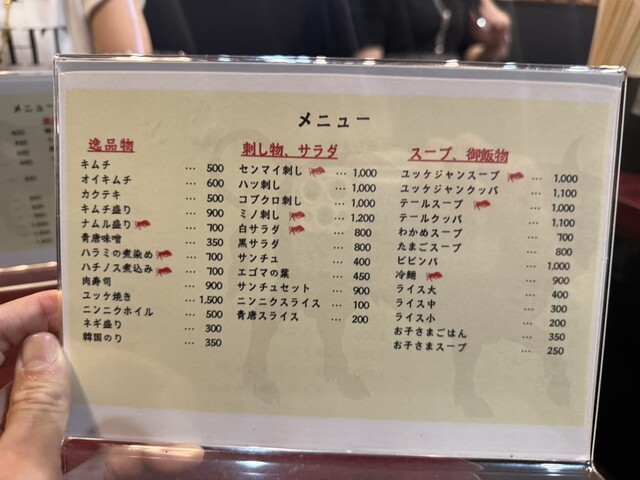 メニュー
逸品物
キムチ … 500
オイキムチ … 600
カクテキ … 500
キムチ盛り … 900
ナムル盛り … 700
青唐味噌 … 350
ハラミの煮染め … 700
ハチノス煮込み … 700
肉寿司 … 900
ユッケ焼き … 1,500
ニンニクホイル … 500
ネギ盛り … 300
韓国のり … 350
刺し物、サラダ
センマイ刺し … 1,000
ハツ刺し … 1,000
コブクロ刺し … 1,000
ミノ刺し … 1,200
白サラダ … 800
黒サラダ … 800
サンチュ … 400
エゴマの葉 … 450
サンチュセット … 900
ニンニクスライス … 100
青唐スライス … 200
スープ、御飯物
ユッケジャンスープ … 1,000
ユッケジャンクッパ … 1,100
テールスープ … 1,000
テールクッパ … 1,100
わかめスープ … 700
たまごスープ … 800
ビビンバ … 1,000
冷麺 … 900
ライス大 … 400
ライス中 … 300
ライス小 … 200
お子さまごはん … 350
お子さまスープ … 250
メニュー